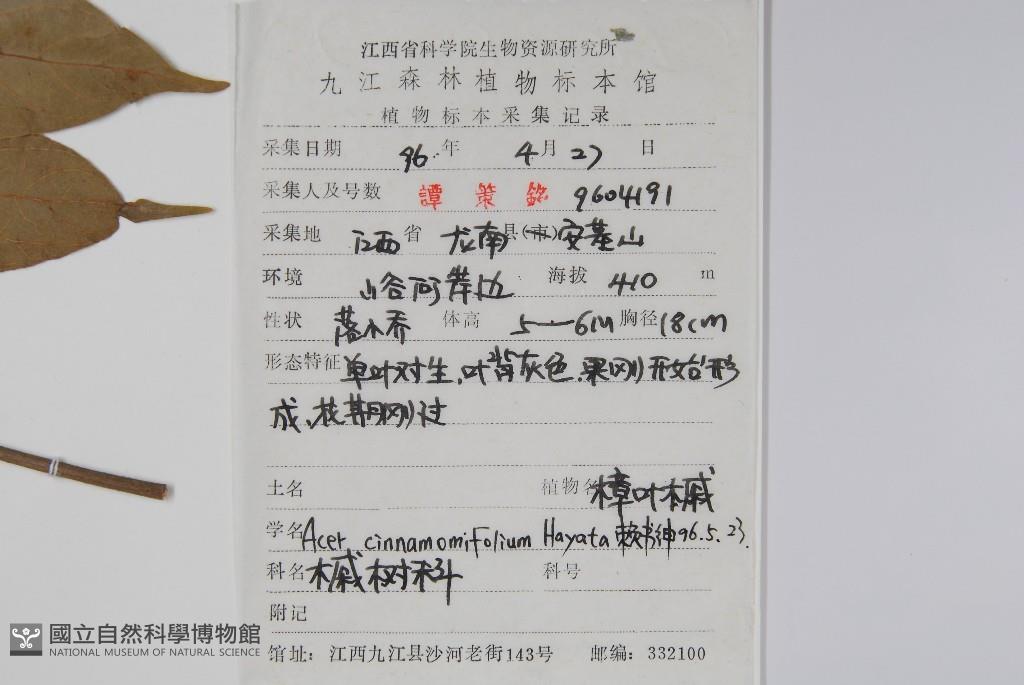 江西省科学院生物资源研究所
九江森林植物标本馆
植物标本采集记录
采集日期 96 年 4 月 27 日
采集人及号数 譚策銘 9604191
采集地 江西 省 龙南 县(市) 安基山
环境 山谷河岸边 海拔 410 m
性状 落小乔 体高 5—6m 胸径 18cm
形态特征 单叶对生,叶背灰色,果刚开始形
成,花期刚过
土名 植物名 樟叶槭
学名 Acer cinnamomifolium Hayata 赖书绅 96.5.23.
科名 槭树科 科号
附记
馆址:江西九江县沙河老街143号 邮编:332100
國立自然科學博物館
NATIONAL MUSEUM OF NATURAL SCIENCE